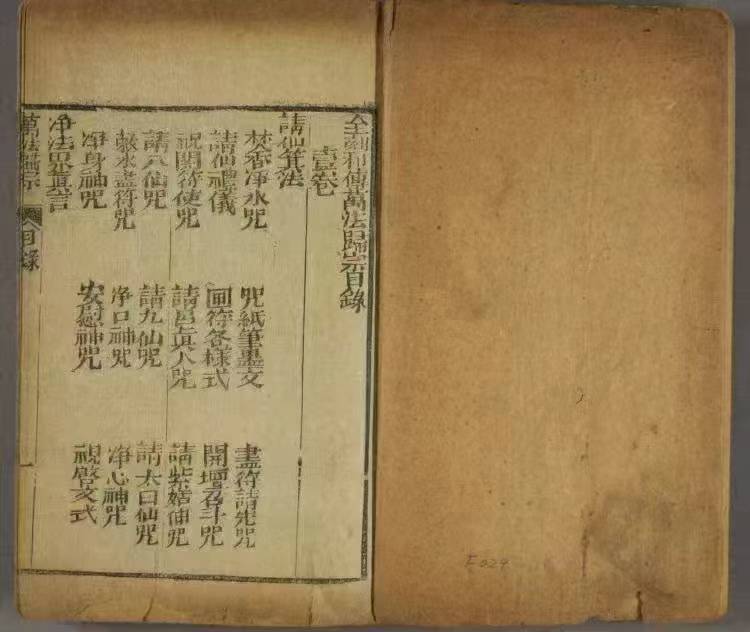 全創秘傳萬法歸宗目錄
壹卷
請仙箕法
焚香淨水咒 咒紙筆墨文 畫符請先咒
請仙禮儀 画符各樣式 開壇召斗咒
祝開符使咒 請呂真人咒 請紫姑仙咒
請八仙咒 請九仙咒 請太白仙咒
敕水盡符咒 净口神咒 净心神咒
净身神咒 安慰神咒 視啓文式
净法界真言
萬法歸宗 目錄 一
F029